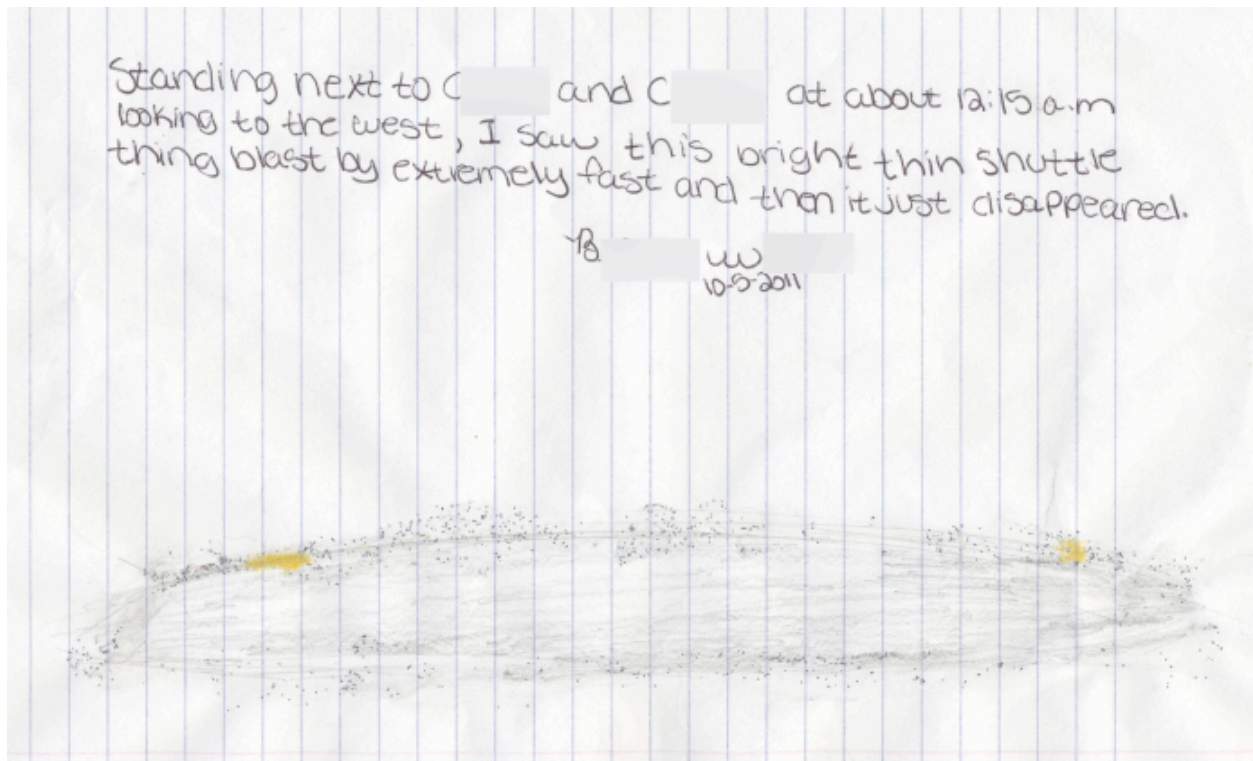 Standing next to C and C at about 12:15 a.m
looking to the west, I saw this bright thin shuttle
thing blast by extremely fast and then it just disappeared.
B W
10-5-2011